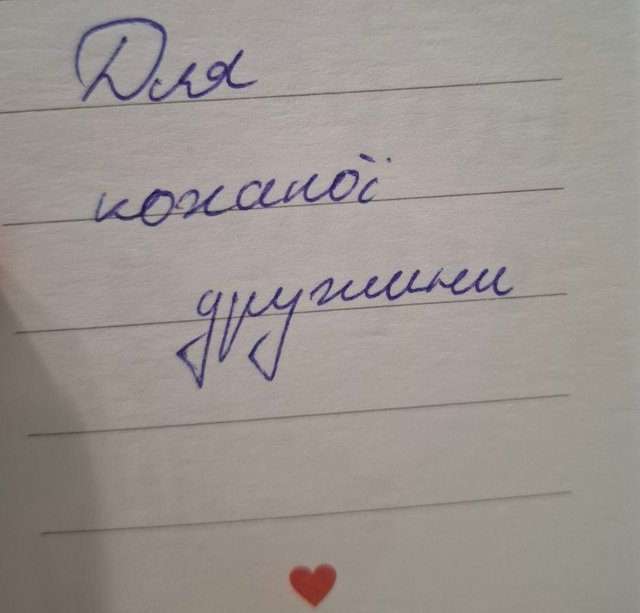 Для
коханої
дружини